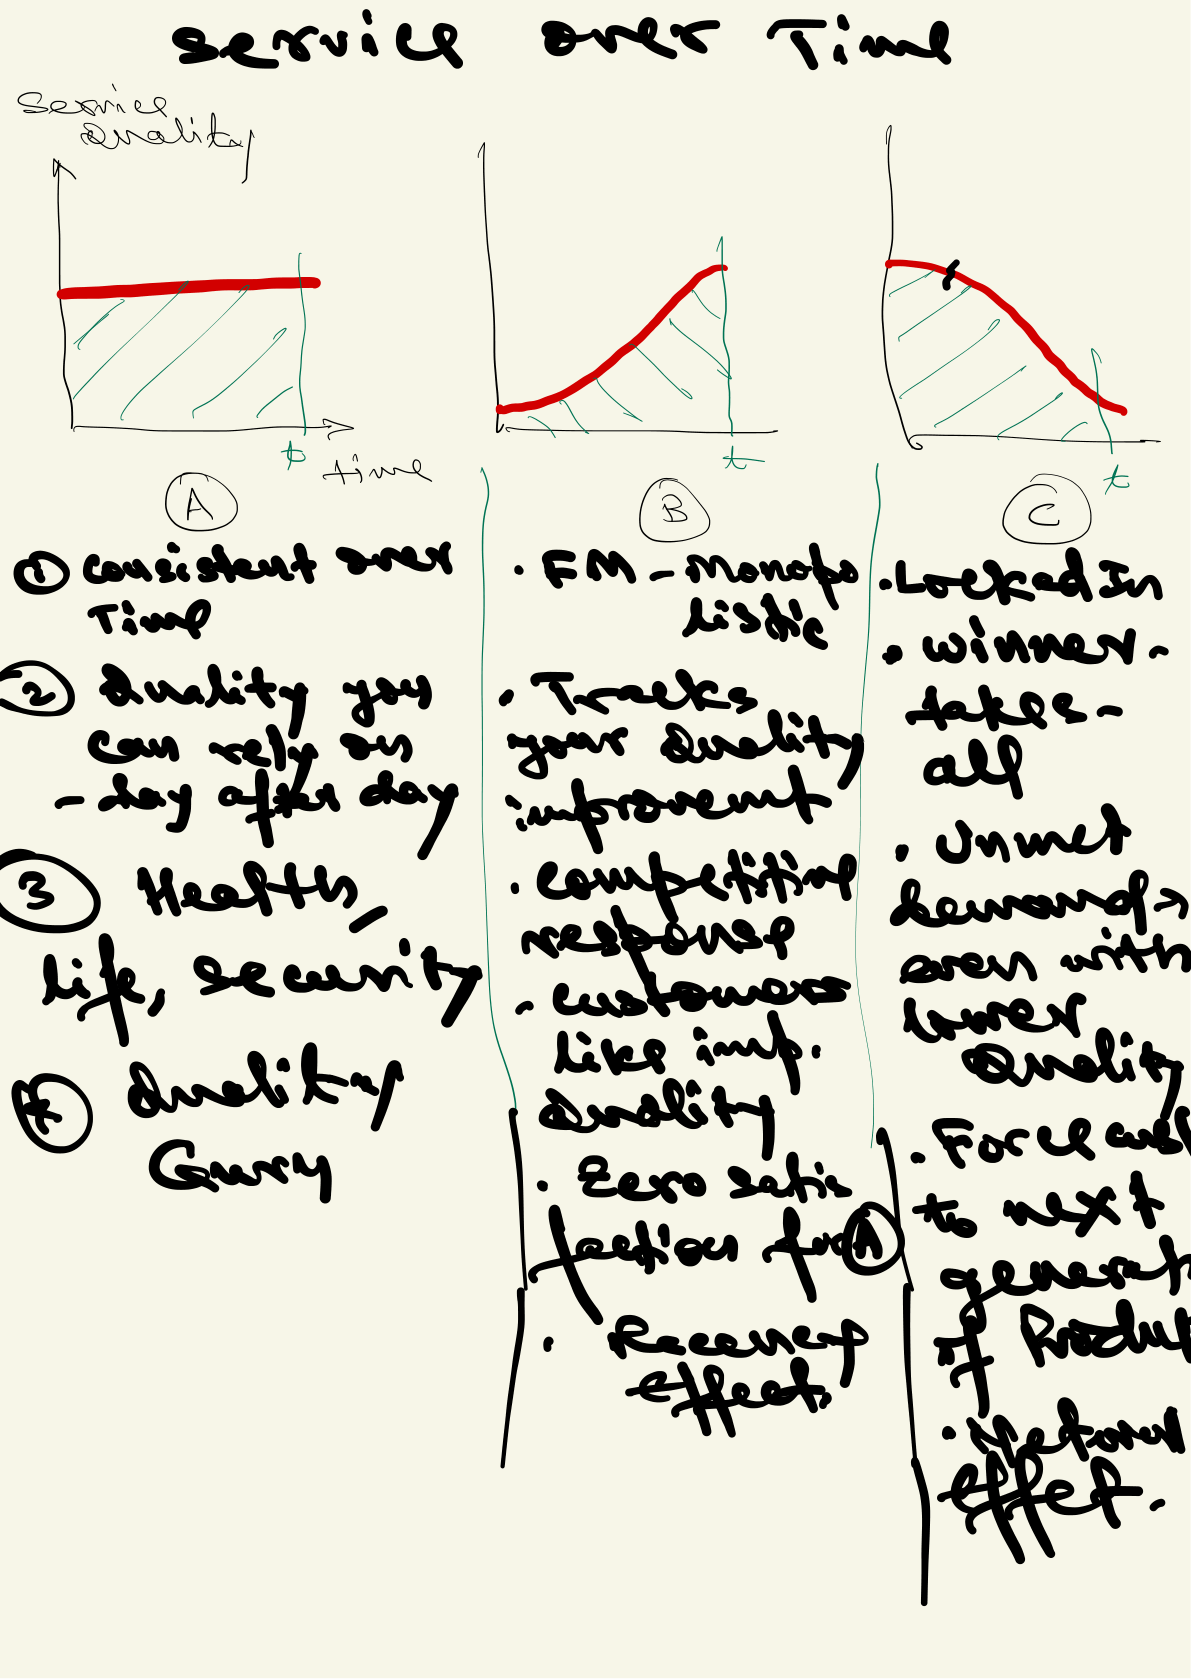 Service over Time
Service
Quality
t
time
t
t
A
B
C
① Consistent over
Time
② Quality you
can rely on
- day after day
③ Health,
life, security
④ Quality
Query
· FM - Monopo
listic
· Tracks
your Quality
improvemt
· Competitive
response
· customers
like imp.
Quality
· Zero satis
faction for A
· Recency
effect.
· Locked In
· winner-
takes-
all
· Unmet
demand →
even with
lower
Quality
· Force cust
to next
generat
of Produc
effect.